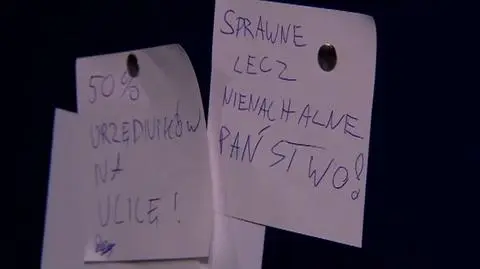 50%
URZĘDNIKÓW
NA
ULICĘ!
SPRAWNE
LECZ
NIENACHALNE
PAŃSTWO!